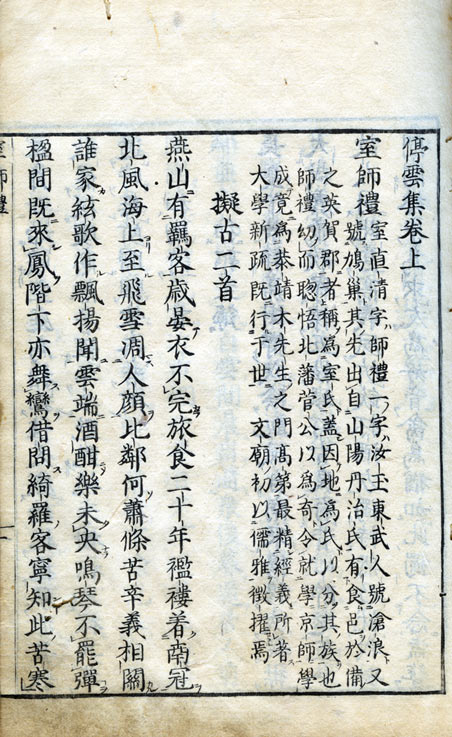 停雲集卷上
室師禮 室直清字師禮一字汝玉東武人號滄浪又
號鳩巢其先出自山陽丹治氏有食邑於備
之英賀郡者稱為室氏蓋因地為氏以分其族也
師禮幼而聰悟北藩菅公以為奇令就學京師學
成竟為恭靖木先生之門高第最精經義所著
大學新疏既行于世 文廟初以儒雅徵擢焉
擬古二首
燕山有羈客歲晏衣不完旅食二十年襤褸着南冠
北風海上至飛雪凋人顏比鄰何蕭條苦辛義相關
誰家絃歌作飄揚聞雲端酒酣樂未央鳴琴不罷彈
楹間既來鳳階下亦舞鸞借問綺羅客寧知此苦寒
室師禮